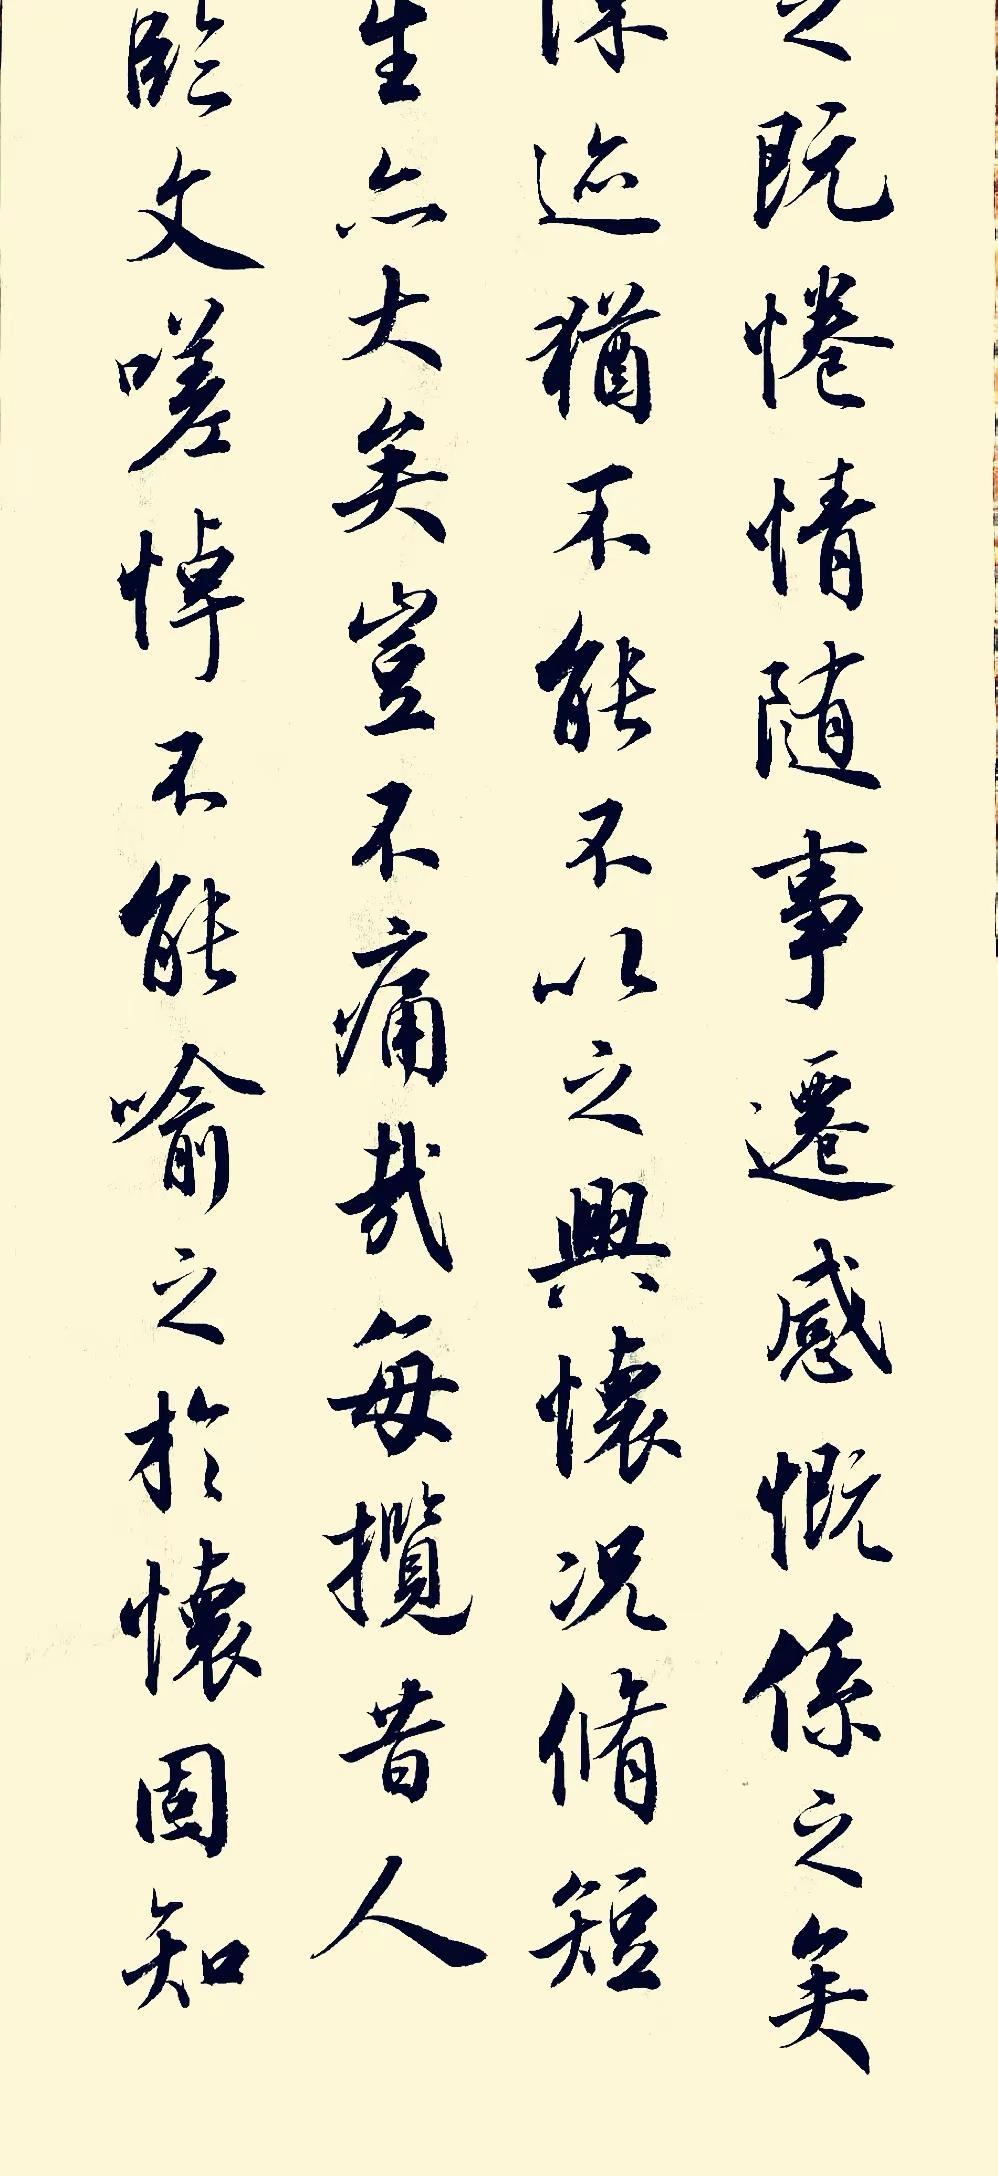 之既惓情随事遷感慨係之矣
迹猶不能不以之興懷況脩短
生亦大矣豈不痛哉每攬昔人
臨文嗟悼不能喻之於懷固知